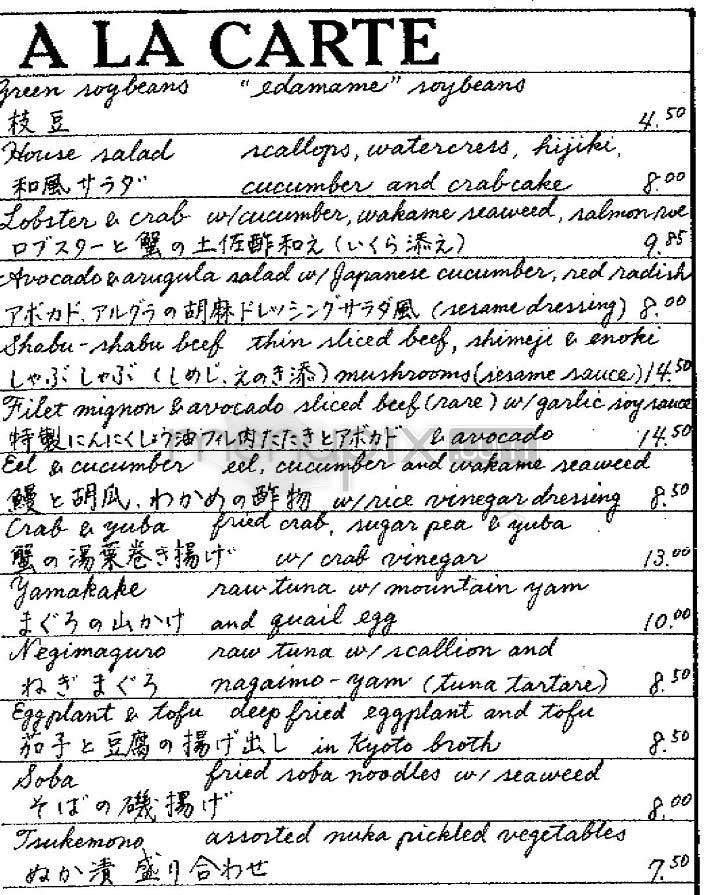 A LA CARTE
Green soybeans "edamame" soybeans
枝豆 4.50
House salad scallops, watercress, hijiki,
和風サラダ cucumber and crabcake 8.00
Lobster & crab w/cucumber, wakame seaweed, salmon roe
ロブスターと蟹の土佐酢和え(いくら添え) 9.85
Avocado & arugula salad w/ Japanese cucumber, red radish
アボカド、アルグラの胡麻ドレッシングサラダ風 (sesame dressing) 8.00
Shabu-shabu beef thin sliced beef, shimeji & enoki
しゃぶしゃぶ (しめじ、えのき添) mushrooms (sesame sauce) 14.50
Filet mignon & avocado sliced beef (rare) w/ garlic soy sauce
特製にんにくしょう油フィレ肉たたきとアボカド & avocado 14.50
Eel & cucumber eel, cucumber and wakame seaweed
鰻と胡瓜、わかめの酢物 w/rice vinegar dressing 8.50
Crab & yuba fried crab, sugar pea & yuba
蟹の湯葉巻き揚げ w/ crab vinegar 13.00
Yamakake raw tuna w/ mountain yam
まぐろの山かけ and quail egg 10.00
Negimaguro raw tuna w/ scallion and
ねぎまぐろ nagaimo-yam (tuna tartare) 8.50
Eggplant & tofu deep fried eggplant and tofu
茄子と豆腐の揚げ出し in Kyoto broth 8.50
Soba fried soba noodles w/ seaweed
そばの磯揚げ 8.00
Tsukemono assorted nuka pickled vegetables
ぬか漬盛り合わせ 7.50
menupix.com